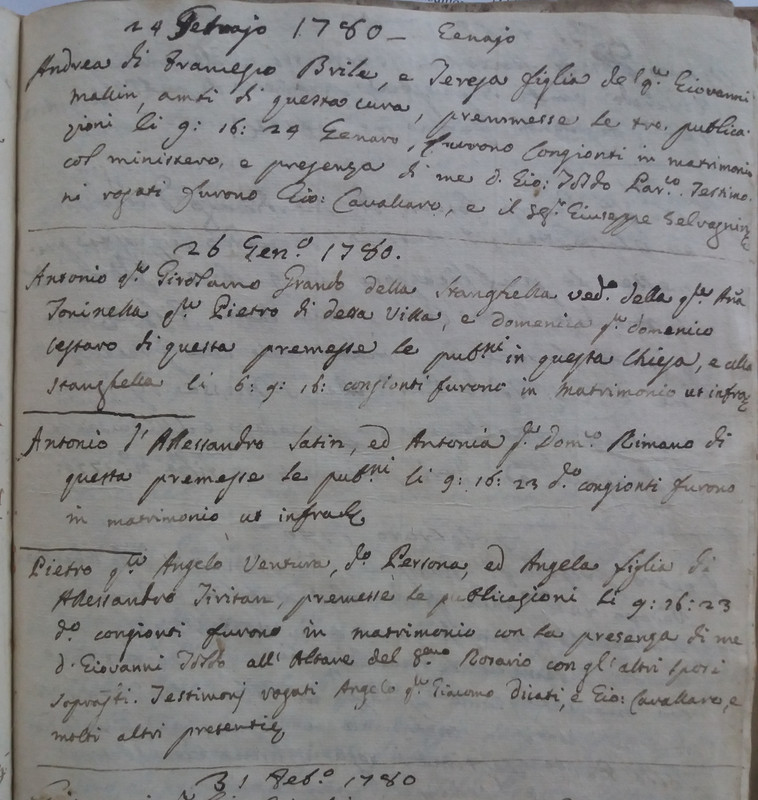 24 Febrajo 1780 - Genajo
Andrea di Francesco Brile, e Teresa figlia del qm Giovanni
Mallin, amti di questa cura, premmesse le tre publica-
zioni li 9: 16: 24 Genaro, furono congionti in matrimonio
col ministero, e presenza di me d. Gio: Paro. Testimo-
nj rogati furono Gio: Cavallaro, e il Sigr Giuseppe Selvagnin
26 Geno 1780.
Antonio qm Girolamo Grando della Stanghella vedo della qm Anna
Toninella qm Pietro di detta Villa, e Domenica qm Domenico
Cestaro di questa premesse le pubni in questa Chiesa, e alla
Stanghella li 6: 9: 16: congionti furono in matrimonio ut infra
Antonio d'Allessandro Satin, ed Antonia qm Domco Rimano di
questa premesse le pubni li 9: 16: 23 do congionti furono
in matrimonio ut infra
Pietro qm Angelo Ventura, do Persona, ed Angela figlia di
Allessandro Tiritan, premesse le publicazioni li 9: 16: 23
do congionti furono in matrimonio con la presenza di me
d. Giovanni all'Altare del Rosario con gl'altri sposi
sopradti. Testimonj rogati Angelo qm Giacomo Dicati, e Gio: Cavallaro, e
molti altri presenti
31 Febo 1780